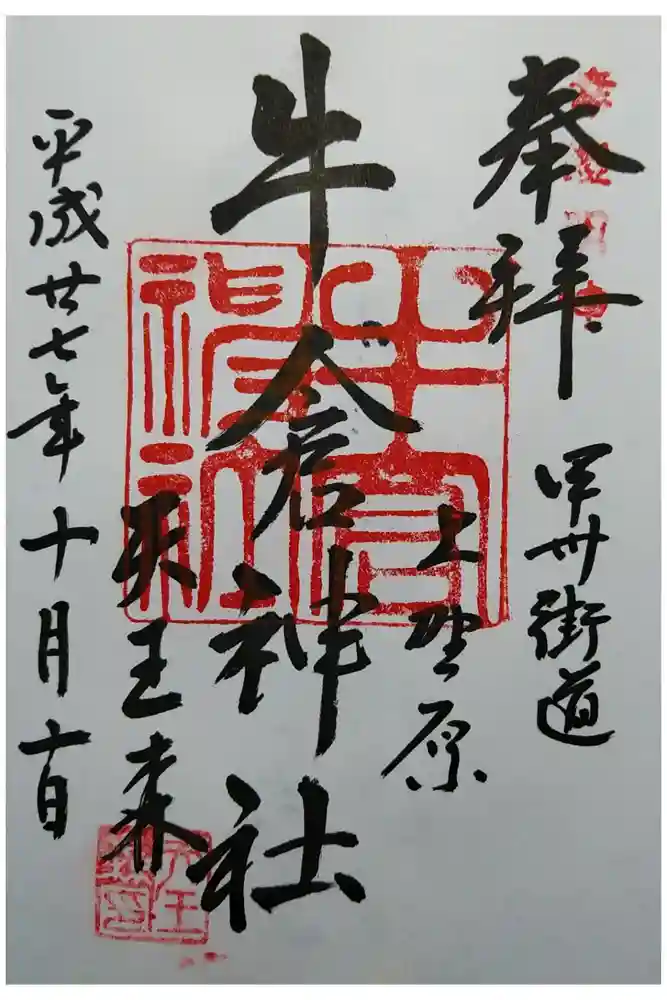 奉拝
甲州街道
上野原
牛倉神社
牛倉神社
天王森
平成廿七年十月